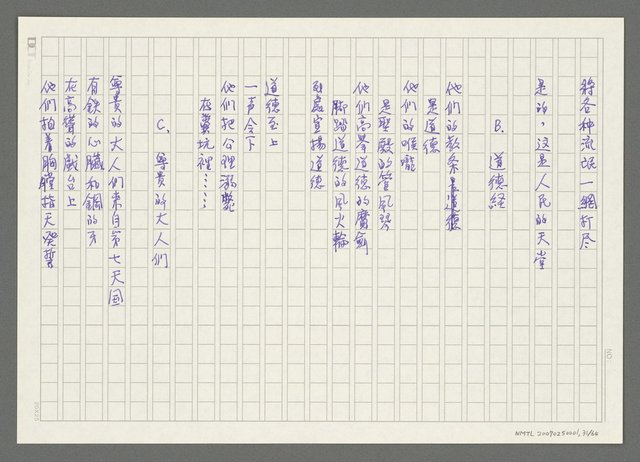 將各种流氓一網打尽
是的，这是人民的天堂
B. 道德経
他们的教条是道德
是道德
他们的喉嚨
是聖殿的管風琴
他们高举道德的寶劍
脚踏道德的風火輪
到處宣揚道德
道德至上
一声令下
他们把公理
在糞坑裡……
C. 尊貴的大人们
尊貴的大人们来自第七天国
有鉄的心臟和銅的牙
在高聳的戲台上
他们拍着胸膛指天發誓
NO.
20X25
NMTL 20090250001, 31/66